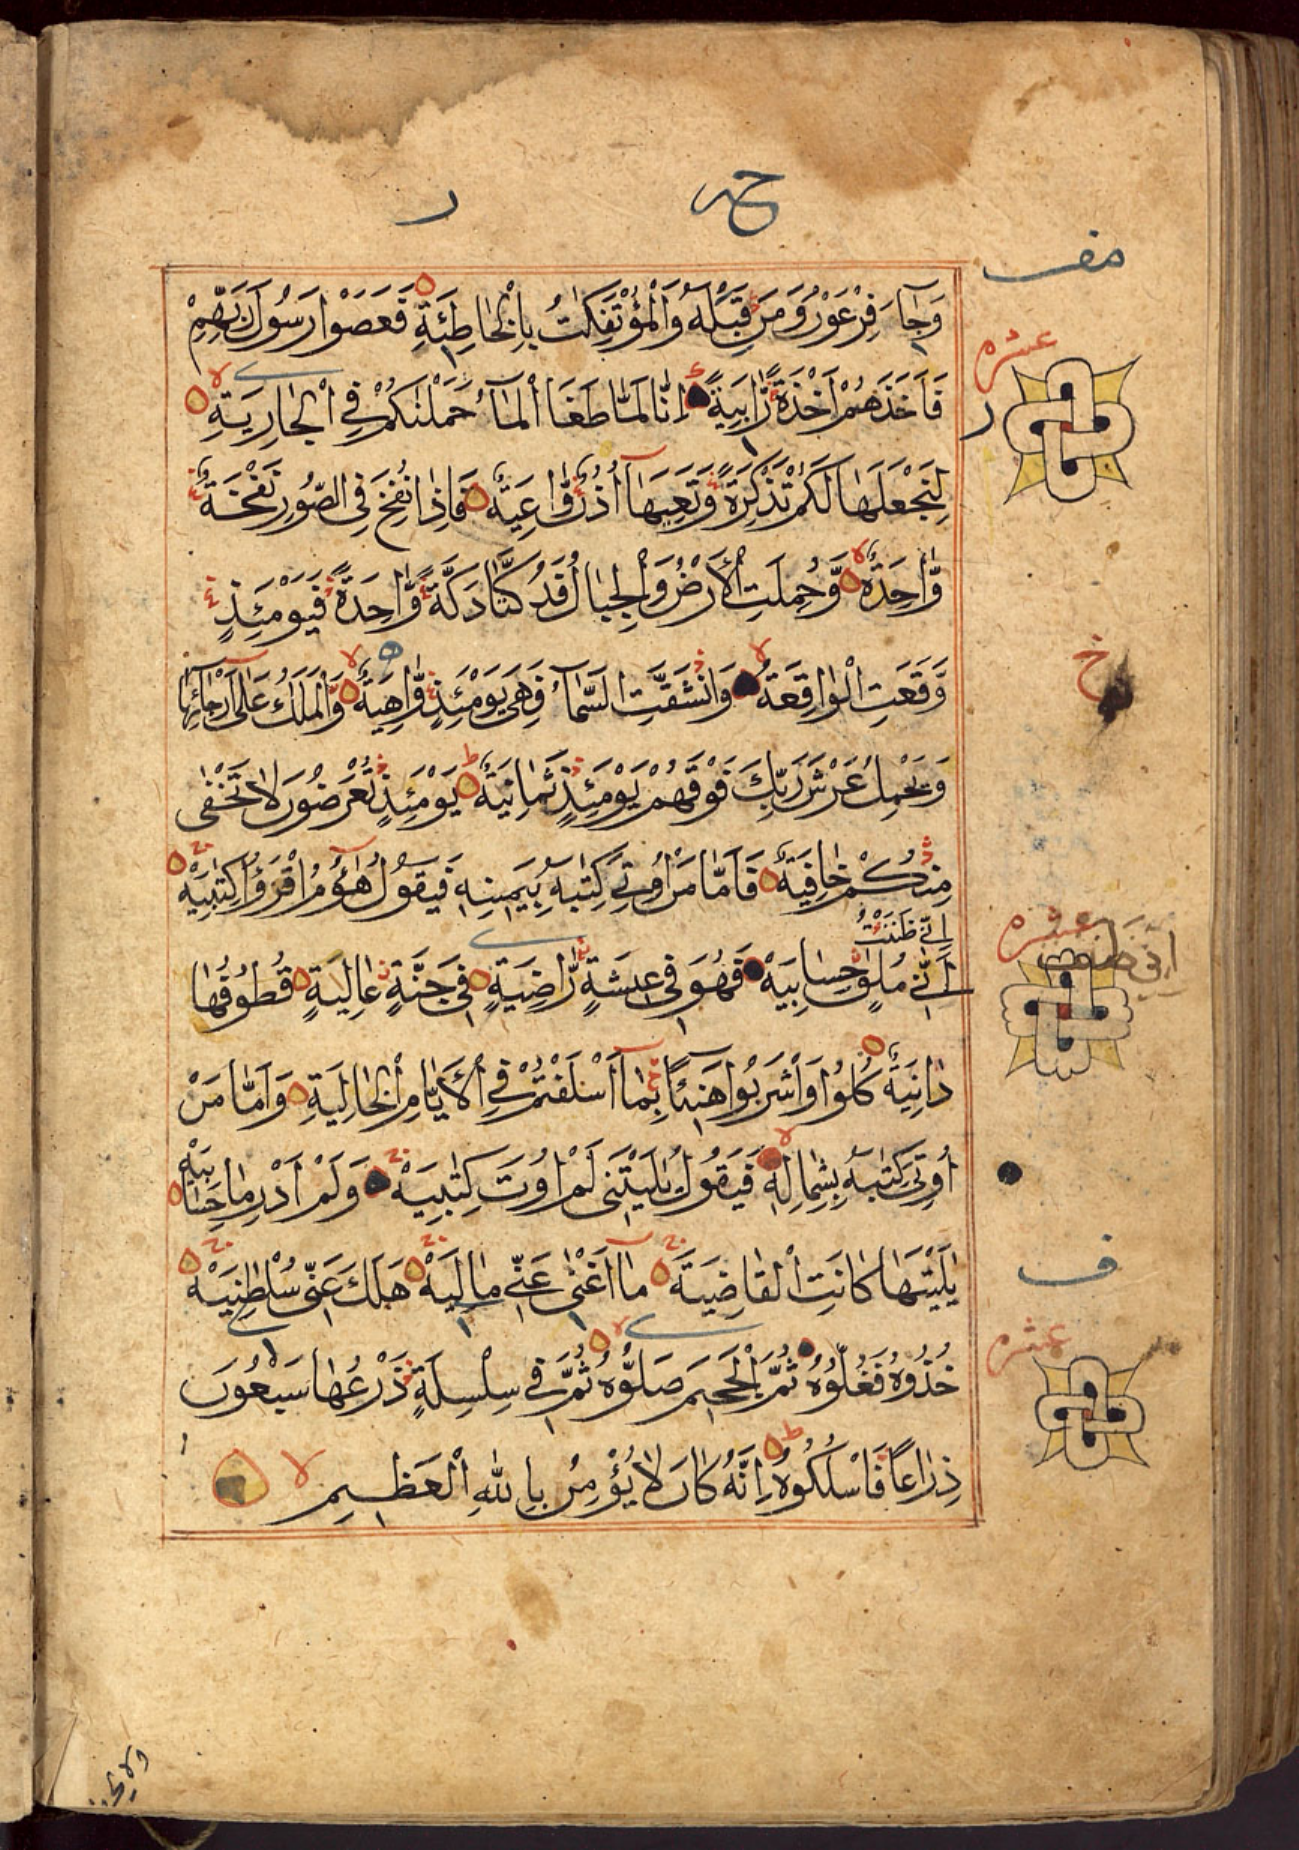 حمد ر
مف
وَجَآءَ فِرْعَوْنُ وَمَنْ قَبْلَهُ وَالْمُؤْتَفِكٰتُ بِالْخَاطِئَةِ فَعَصَوْا رَسُوْلَ رَبِّهِمْ
عشره
فَاَخَذَهُمْ اَخْذَةً رَّابِيَةً اِنَّا لَمَّا طَغَا الْمَآءُ حَمَلْنٰكُمْ فِي الْجَارِيَةِ
ر
لِنَجْعَلَهَا لَكُمْ تَذْكِرَةً وَّتَعِيَهَآ اُذُنٌ وَّاعِيَةٌ فَاِذَا نُفِخَ فِي الصُّوْرِ نَفْخَةٌ
وَّاحِدَةٌ وَّحُمِلَتِ الْاَرْضُ وَالْجِبَالُ فَدُكَّتَا دَكَّةً وَّاحِدَةً فَيَوْمَئِذٍ
وَّقَعَتِ الْوَاقِعَةُ وَانْشَقَّتِ السَّمَآءُ فَهِيَ يَوْمَئِذٍ وَّاهِيَةٌ وَّالْمَلَكُ عَلٰٓى اَرْجَآئِهَا
خ
وَيَحْمِلُ عَرْشَ رَبِّكَ فَوْقَهُمْ يَوْمَئِذٍ ثَمَانِيَةٌ يَوْمَئِذٍ تُعْرَضُوْنَ لَا تَخْفٰى
مِنْكُمْ خَافِيَةٌ فَاَمَّا مَنْ اُوْتِيَ كِتٰبَهٗ بِيَمِيْنِهٖ فَيَقُوْلُ هَآؤُمُ اقْرَءُوْا كِتٰبِيَهْ
اِنِّيْ ظَنَنْتُ
عشره
اني ظننت
اَنِّيْ مُلٰقٍ حِسَابِيَهْ فَهُوَ فِيْ عِيْشَةٍ رَّاضِيَةٍ فِيْ جَنَّةٍ عَالِيَةٍ قُطُوْفُهَا
دَانِيَةٌ كُلُوْا وَاشْرَبُوْا هَنِيْٓئًا بِمَآ اَسْلَفْتُمْ فِي الْاَيَّامِ الْخَالِيَةِ وَاَمَّا مَنْ
اُوْتِيَ كِتٰبَهٗ بِشِمَالِهٖ فَيَقُوْلُ يٰلَيْتَنِيْ لَمْ اُوْتَ كِتٰبِيَهْ وَلَمْ اَدْرِ مَا حِسَابِيَهْ
يٰلَيْتَهَا كَانَتِ الْقَاضِيَةَ مَآ اَغْنٰى عَنِّيْ مَالِيَهْ هَلَكَ عَنِّيْ سُلْطٰنِيَهْ
ف
خُذُوْهُ فَغُلُّوْهُ ثُمَّ الْجَحِيْمَ صَلُّوْهُ ثُمَّ فِيْ سِلْسِلَةٍ ذَرْعُهَا سَبْعُوْنَ
عشره
ذِرَاعًا فَاسْلُكُوْهُ اِنَّهٗ كَانَ لَا يُؤْمِنُ بِاللّٰهِ الْعَظِيْمِ لا